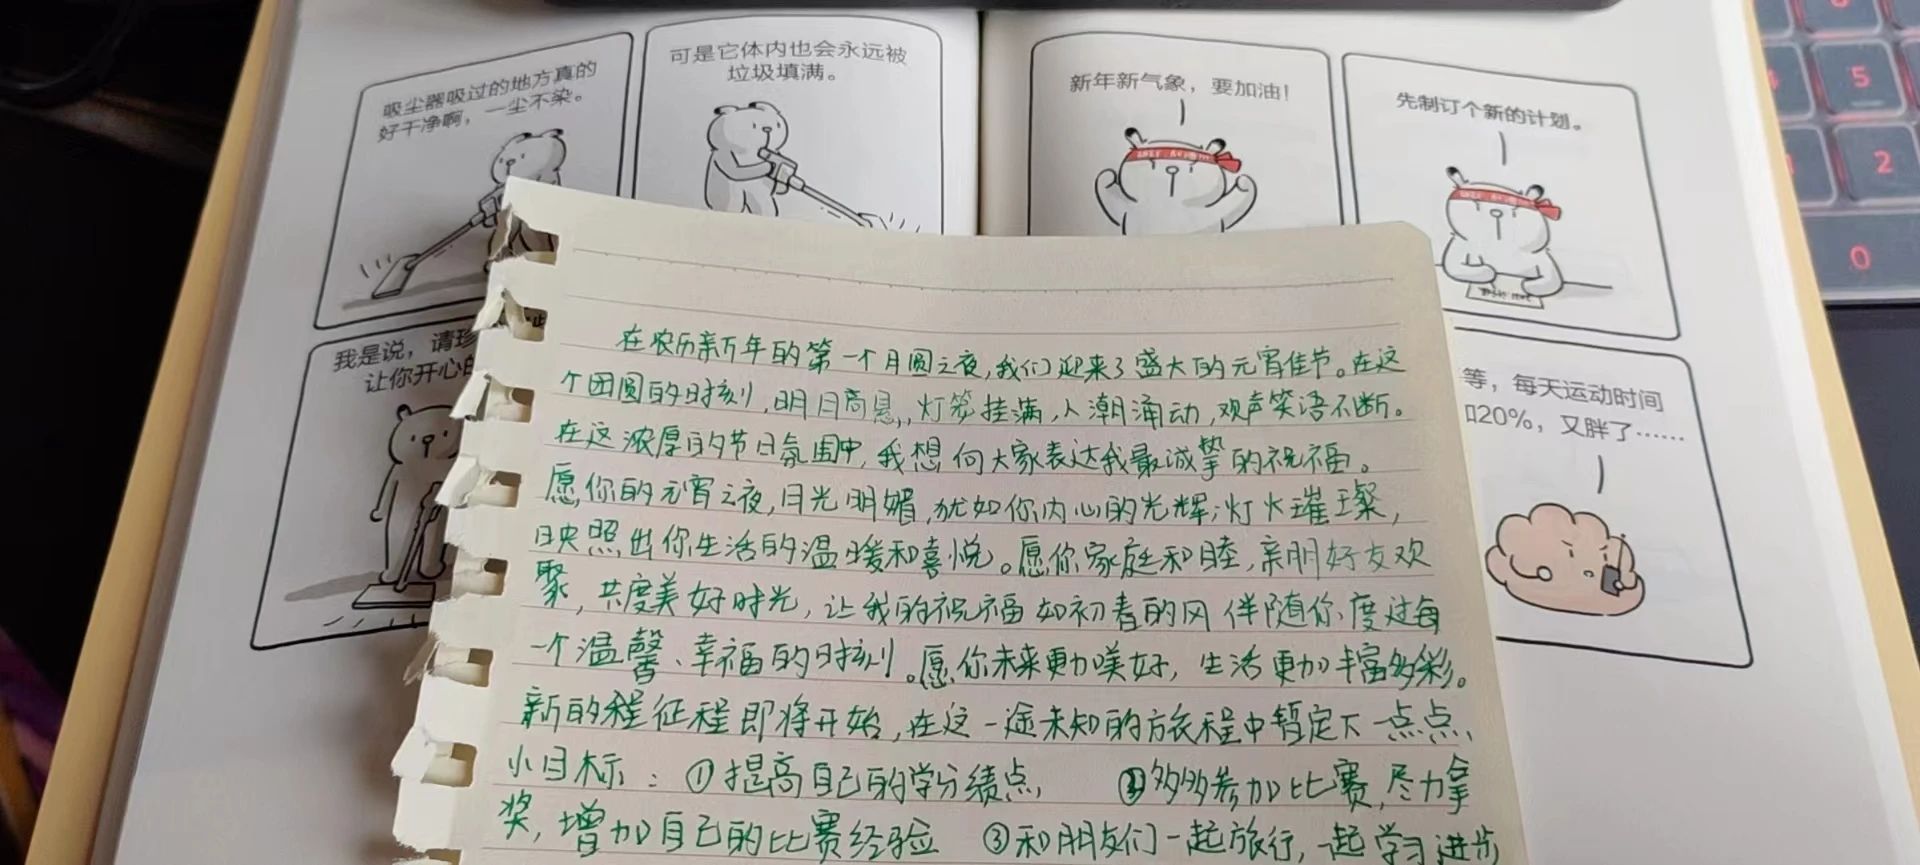 吸尘器吸过的地方真的
好干净啊，一尘不染。
可是它体内也会永远被
垃圾填满。
我是说，请珍
让你开心的
新年新气象，要加油！
先制订个新的计划。
等，每天运动时间
加20%，又胖了……
5
2
0
在农历新万年的第一个月圆之夜,我们迎来了盛大的元宵佳节。在这
个团圆的时刻,明月高悬,灯笼挂满,人潮涌动,欢声笑语不断。
在这浓厚的节日氛围中,我想向大家表达我最诚挚的祝福。
愿你的元宵之夜,月光明媚,犹如你内心的光辉;灯火璀璨,
映照出你生活的温暖和喜悦。愿你家庭和睦,亲朋好友欢
聚,共度美好时光,让我的祝福如初春的风伴随你度过每
一个温馨、幸福的时刻。愿你未来更加美好,生活更加丰富多彩。
新的程征程即将开始,在这一途未知的旅程中暂定下一点点
小目标：①提高自己的学分绩点 ②多多参加比赛,尽力拿
奖,增加自己的比赛经验 ③和朋友们一起旅行,一起学习进步